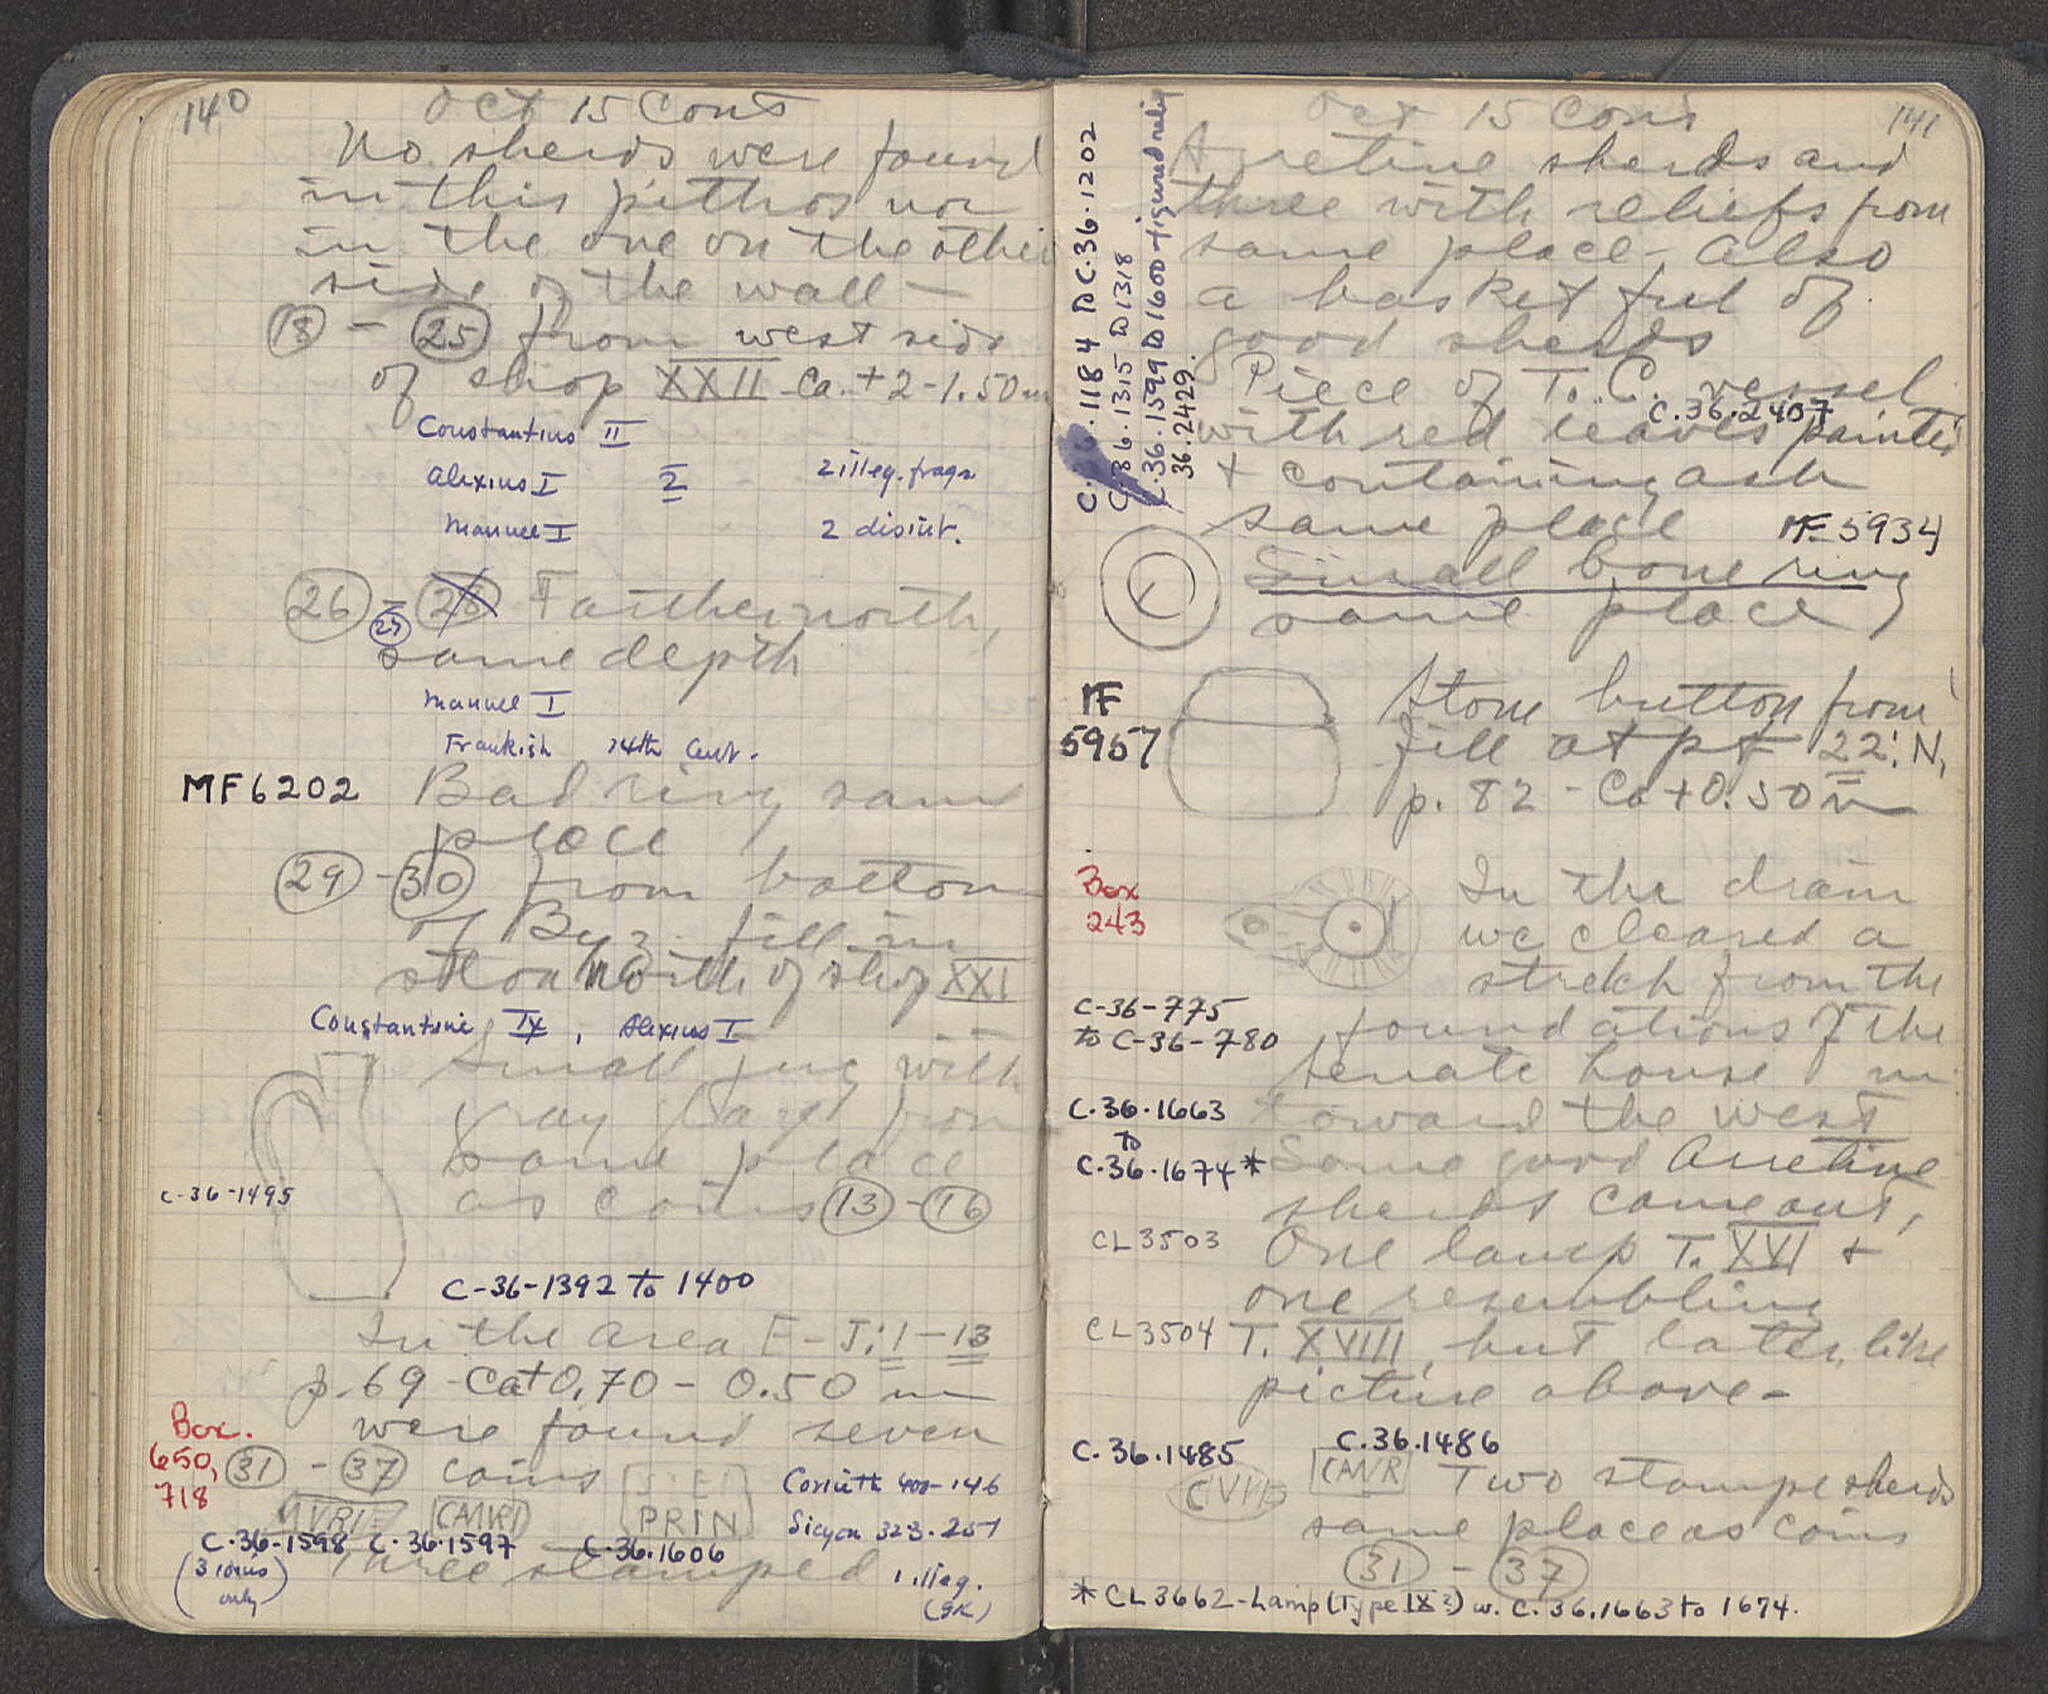 140
Oct 15 Cont
No sherds were found
in this pithos nor
in the one on the other
side of the wall —
(18) - (25) from west side
of shop XXII Ca. +2-1.50m
Constantius II
Alexius I 2 2 illeg. frags.
Manuel I 2 disint.
(26) - (28) (27) Farther north,
same depth
Manuel I
Frankish 14th Cent.
MF6202 Bad ring same
place
(29) - (30) from bottom
of Byz. fill in
stoa North of shop XXI
Constantine IX, Alexius I
Small jug with
gray from
same place
C-36-1495 as coins (13) - (16)
C-36-1392 to 1400
In the area E-J:1-13
p. 69 - Ca+0.70 - 0.50 m
were found seven
Box.
650,
718
(31) - (37) coins
Corinth 400-146
CMRI PRIN
Sicyon 323-251
C-36-1598 C-36-1597 C-36.1606
(3 coins
only)
Three stamped
1 illeg.
(GK)
141
Oct 15 Cont
Arretine sherds and
three with reliefs from
same place - Also
a basket full of
good sherds
C-36-1184 C.36.1202
C-36.1315 1318
C.36.1599 1600 figured relief
36.2429.
Piece of T.C. vessel
C.36.2407
with red leaves painted
+ containing ash
same place
MF 5934
Small bone ring
same place
MF
5957
Stone button from
fill at pt 22:N,
p. 82 - Ca+0.50 m
Box
243
In the drain
we cleared a
stretch from the
C-36-775
to C-36-780
foundations of the
senate house
C.36.1663
to
C.36.1674*
toward the west
Some good Arretine
sherds came out,
CL3503 One lamp T. XVI +
one resembling
CL3504 T. XVIII, but later, like
picture above -
C.36.1485 C.36.1486
CVVIB CAMR Two stampe sherds
same place as coins
(31) - (37)
* CL3662-Lamp (Type IX?) w. C.36.1663 to 1674.